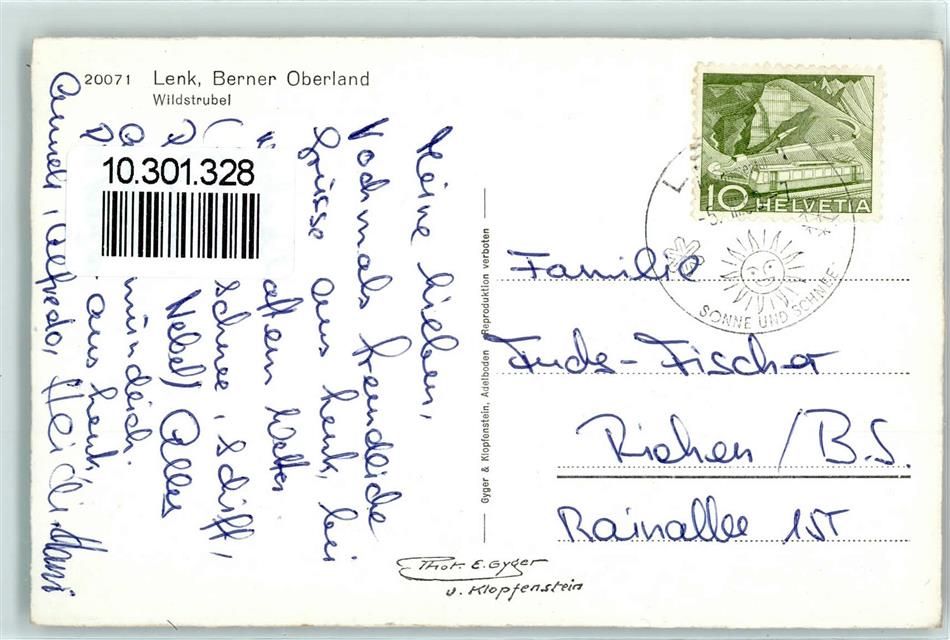 20071 Lenk, Berner Oberland
Wildstrubel
10.301.328
Meine Lieben,
Nochmals freundliche
Grüsse aus Lenk, bei
allem Wetter
Schnee, Schiff,
Nebel) Alles
mündlich.
aus Lenk,
Anneli, Alfredo, Heidi, Hans
Gyger & Klopfenstein, Adelboden Reproduktion verboten
10 HELVETIA
SONNE UND SCHNEE
Familie
Fuds-Fischer
Riehen / B.S.
Rainallee 151
Phot. E. Gyger
u. Klopfenstein